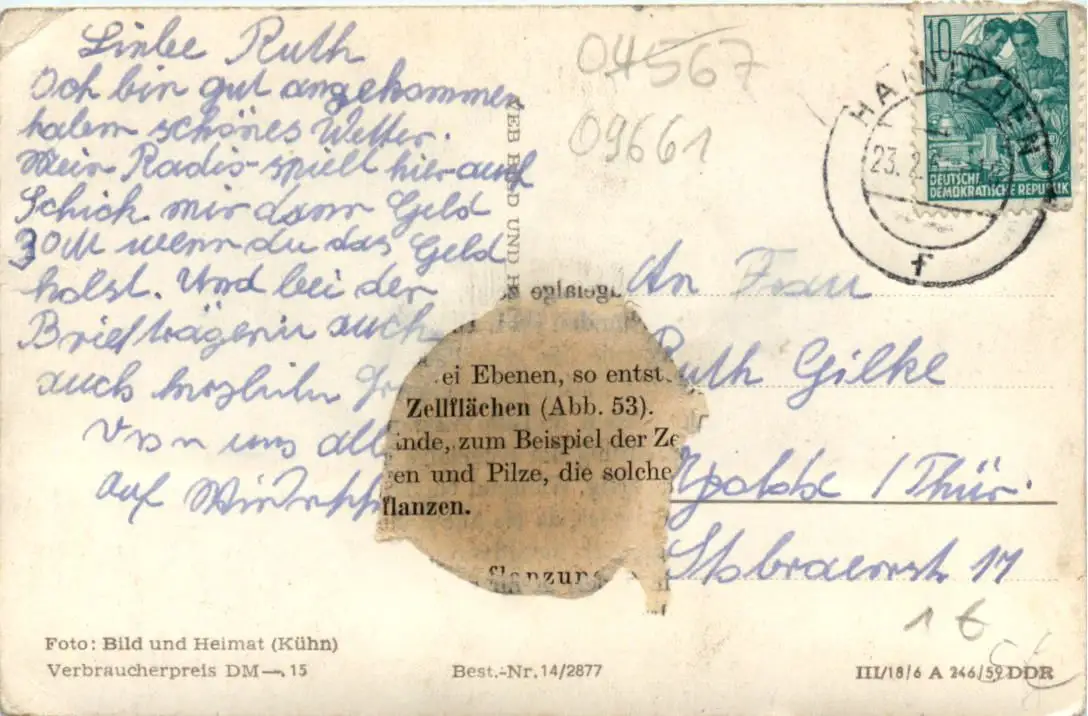 Liebe Ruth
Ich bin gut angekommen
haben schönes Wetter.
Mein Radio spielt hier auch
Schick mir dann Geld
30M wenn du das Geld
holst. Und bei der
Briefträgerin auch
auch
Von uns all
auf
04567
09661
10
DEUTSCHE
DEMOKRATISCHE REPUBLIK
HAINICHEN
23.2.
f
VEB BILD UND H
An Frau
Ruth Gilke
Apolda / Thür.
Stobraerstr 17
ei Ebenen, so entst
Zellflächen (Abb. 53).
ände, zum Beispiel der Ze
en und Pilze, die solche
flanzen.
flanzung
1 €
5€
Foto: Bild und Heimat (Kühn)
Verbraucherpreis DM —,15
Best.-Nr. 14/2877
III/18/6 A 246/59 DDR